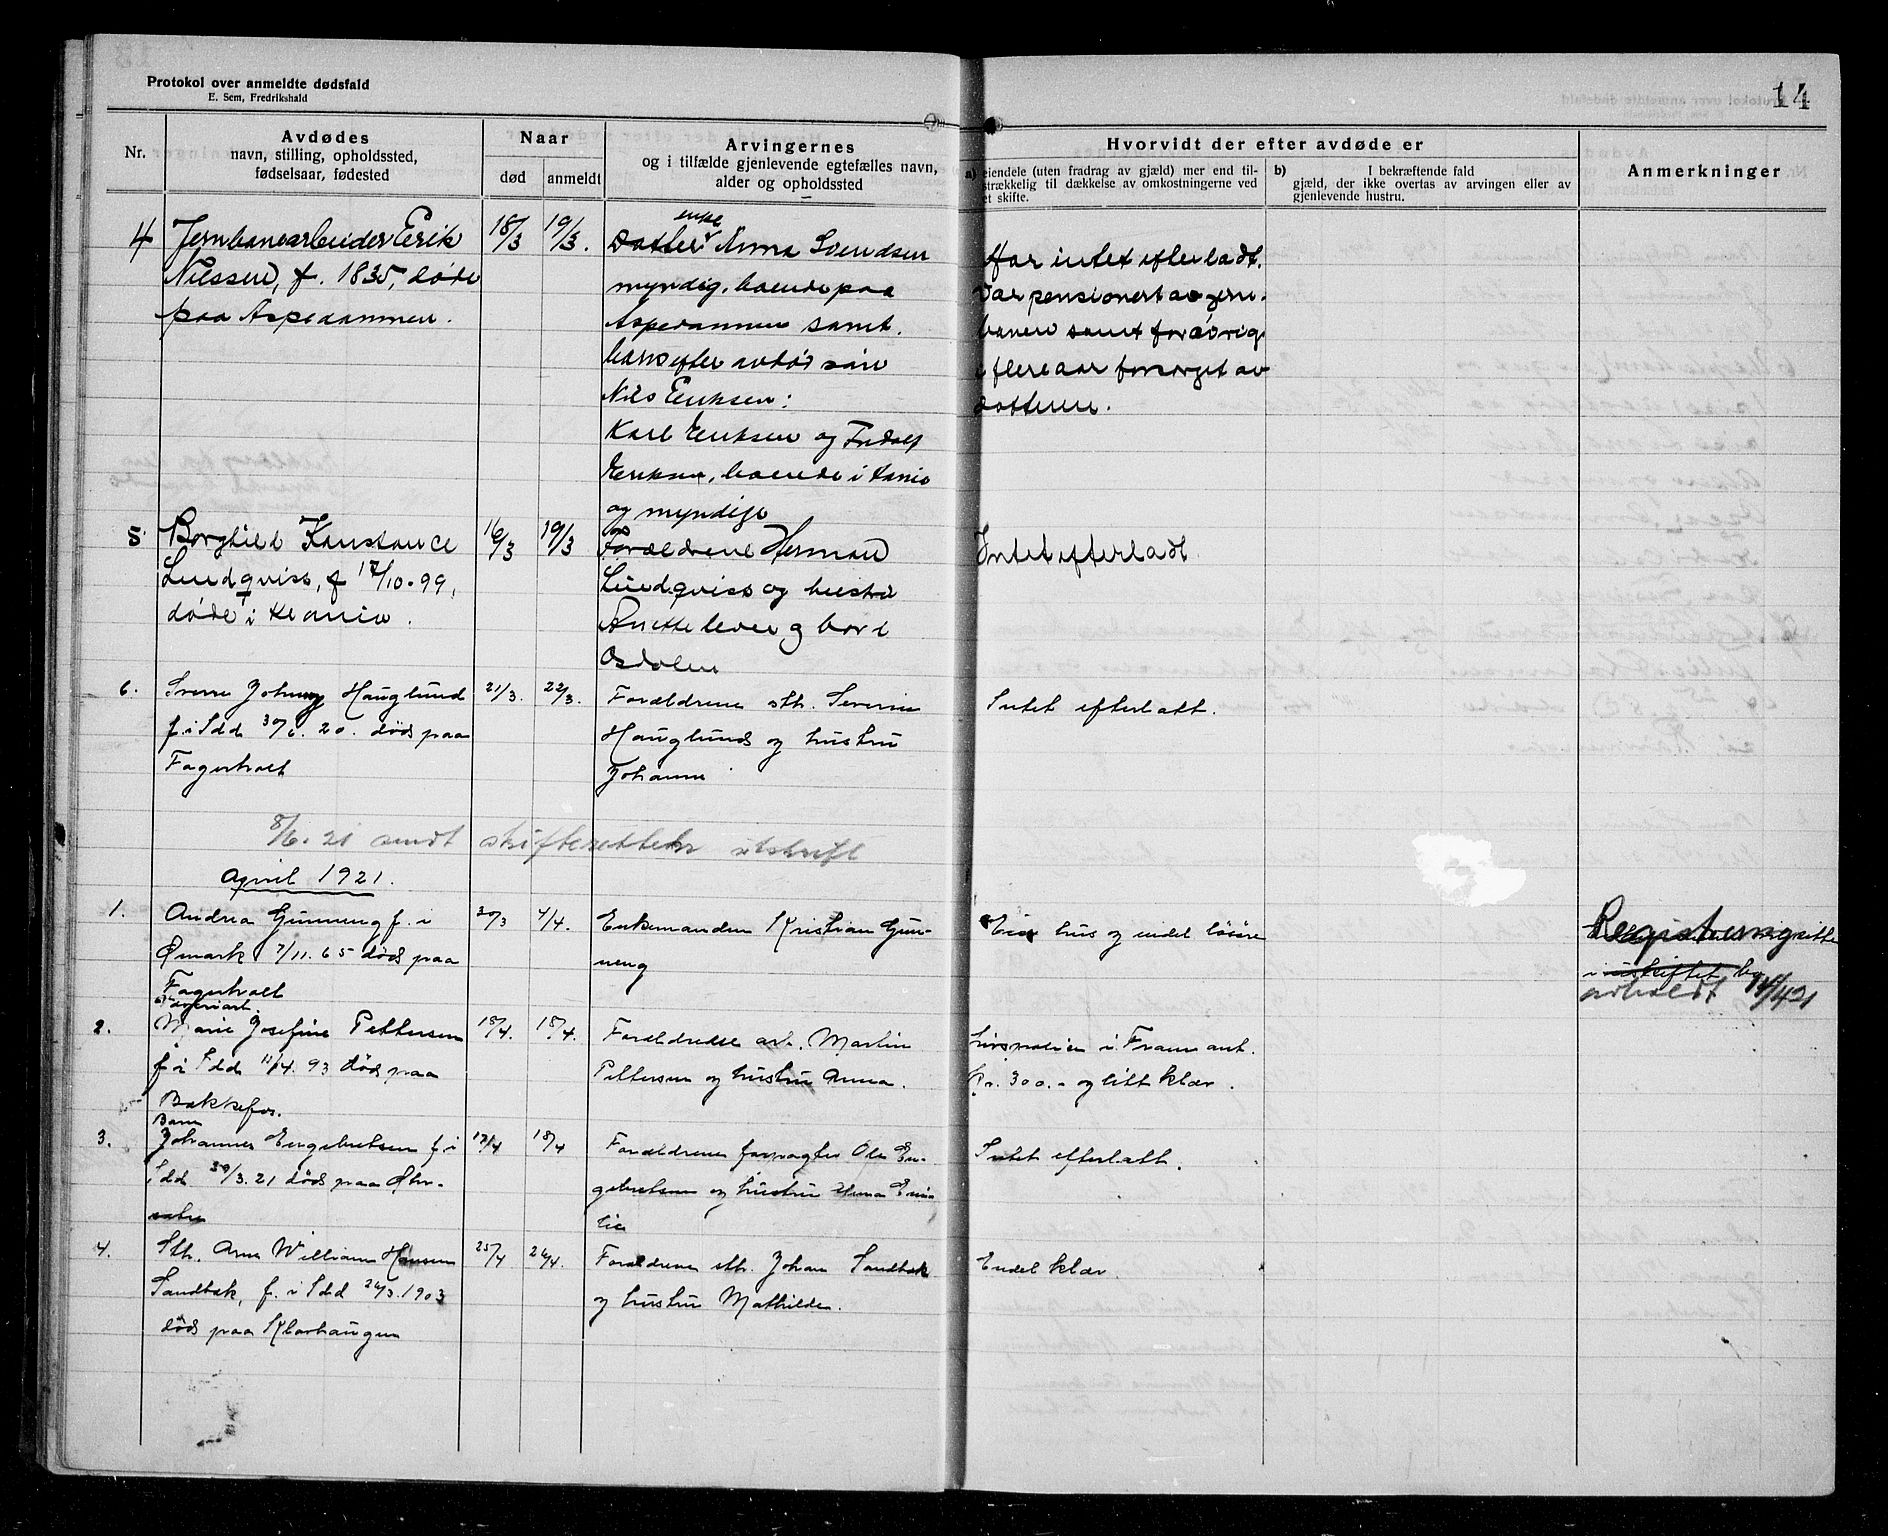 Protokol over anmeldte dødsfald
E. Sem, Fredrikshald
14
Nr.
Avdødes
navn, stilling, opholdssted,
fødselsaar, fødested
Naar
død
anmeldt
Arvingernes
og i tilfælde gjenlevende egtefælles navn,
alder og opholdssted
Hvorvidt der efter avdøde er
a) eiendele (uten fradrag av gjæld) mer end til-
strækkelig til dækkelse av omkostningerne ved
et skifte.
b) I bekræftende fald
gjæld, der ikke overtas av arvingen eller av
gjenlevende hustru.
Anmerkninger
4
Jernbanearbeider Erik
Nilssen, f. 1835, døde
paa Aspedammen.
18/3
19/3.
enke
Datter Anna Svendsen
myndig, boende paa
Aspedammen samt.
barn efter avdød søn
Nils Eriksen:
Karl Eriksen og Fridolf
Eriksen, boende i
og myndige
Har intet efterladt.
Var pensionert av jern-
banen samt forøvrig
i flere aar forsørget av
datteren.
5
Borghild Konstance
Lundqvist, f 17/10-99,
døde i Kr.ania.
16/3
19/3
Forældrene Herman
Lundqvist og hustru
Anette lever og bor i
Osdalen
Intet efterladt
6.
Sverre Johnny Hauglund
f. i Idd 30/6. 20. død paa
Fagerholt
21/3.
22/3.
Forældrene sth. Severin
Hauglund og hustru
Johanne
Intet efterlatt.
8/6. 21 sendt skifteretten utskrift
April 1921.
1.
Andrea Gunneng f. i
Ømark 7/11. 65 død paa
Fagerholt
30/3
4/4.
Enkemanden Kristian Gun-
neng
Eier hus og endel løsøre
Registrering
i uskiftet bo
avholdt 14/4 21
2.
Marie Josefine Pettersen
f. i Idd 11/4. 93 død paa
Bakkefos.
18/4.
18/4.
Forældrene arb. Martin
Pettersen og hustru Anna.
Livspolice i Fram ant.
Kr. 300.- og litt klær.
3.
Barn
Johannes Engebretsen f. i
Idd 30/3. 21 død paa
17/4
18/4
Forældrene forpagter Ole En-
gebretsen og hustru Anna Emi-
lie
Intet efterlatt.
4.
Sth. Arne William Hansen
Sandbæk, f. i Idd 26/3. 1903
død paa Klorhaugen
25/4
26/4.
Forældrene sth. Johan Sandbæk
og hustru Mathilde.
Endel klær.